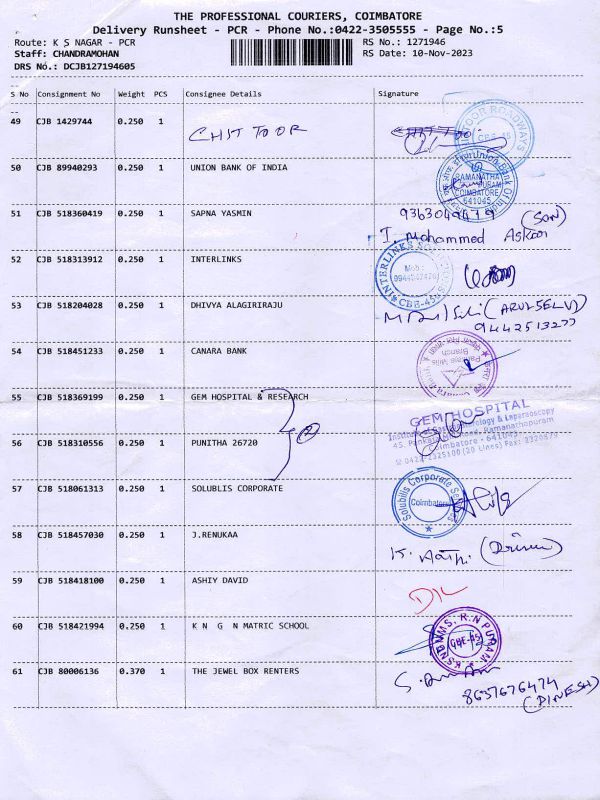 THE PROFESSIONAL COURIERS, COIMBATORE
Delivery Runsheet - PCR - Phone No.:0422-3505555 - Page No.:5
Route: K S NAGAR - PCR RS No.: 1271946
Staff: CHANDRAMOHAN RS Date: 10-Nov-2023
DRS No.: DCJB127194605
S No Consignment No Weight PCS Consignee Details Signature
49 CJB 1429744 0.250 1 CHST TOOR
50 CJB 89940293 0.250 1 UNION BANK OF INDIA
RAMANATHA
PURAM
COIMBATORE
641045
51 CJB 518360419 0.250 1 SAPNA YASMIN 9363049479 (SON)
I. Mohammed
52 CJB 518313912 0.250 1 INTERLINKS
INTERLINKS
Mob:
CBE-45
53 CJB 518204028 0.250 1 DHIVYA ALAGIRIRAJU (ARUL SELVI)
9442513277
54 CJB 518451233 0.250 1 CANARA BANK
Branch
55 CJB 518369199 0.250 1 GEM HOSPITAL & RESEARCH
GEM HOSPITAL
Institute of Gastroenterology & Laparoscopy
45, Pankaja Mill Road, Ramanathapuram
Coimbatore - 641045
0422-2325100 (20 Lines) Fax:
56 CJB 518310556 0.250 1 PUNITHA 26720 2
57 CJB 518061313 0.250 1 SOLUBLIS CORPORATE
Solubilis Corporate Services
Coimbatore
58 CJB 518457030 0.250 1 J.RENUKAA
K.
59 CJB 518418100 0.250 1 ASHIY DAVID
D/L
60 CJB 518421994 0.250 1 K N G N MATRIC SCHOOL
R.N PURAM
CBE-45
61 CJB 80006136 0.370 1 THE JEWEL BOX RENTERS
8637676474
(DINESH)